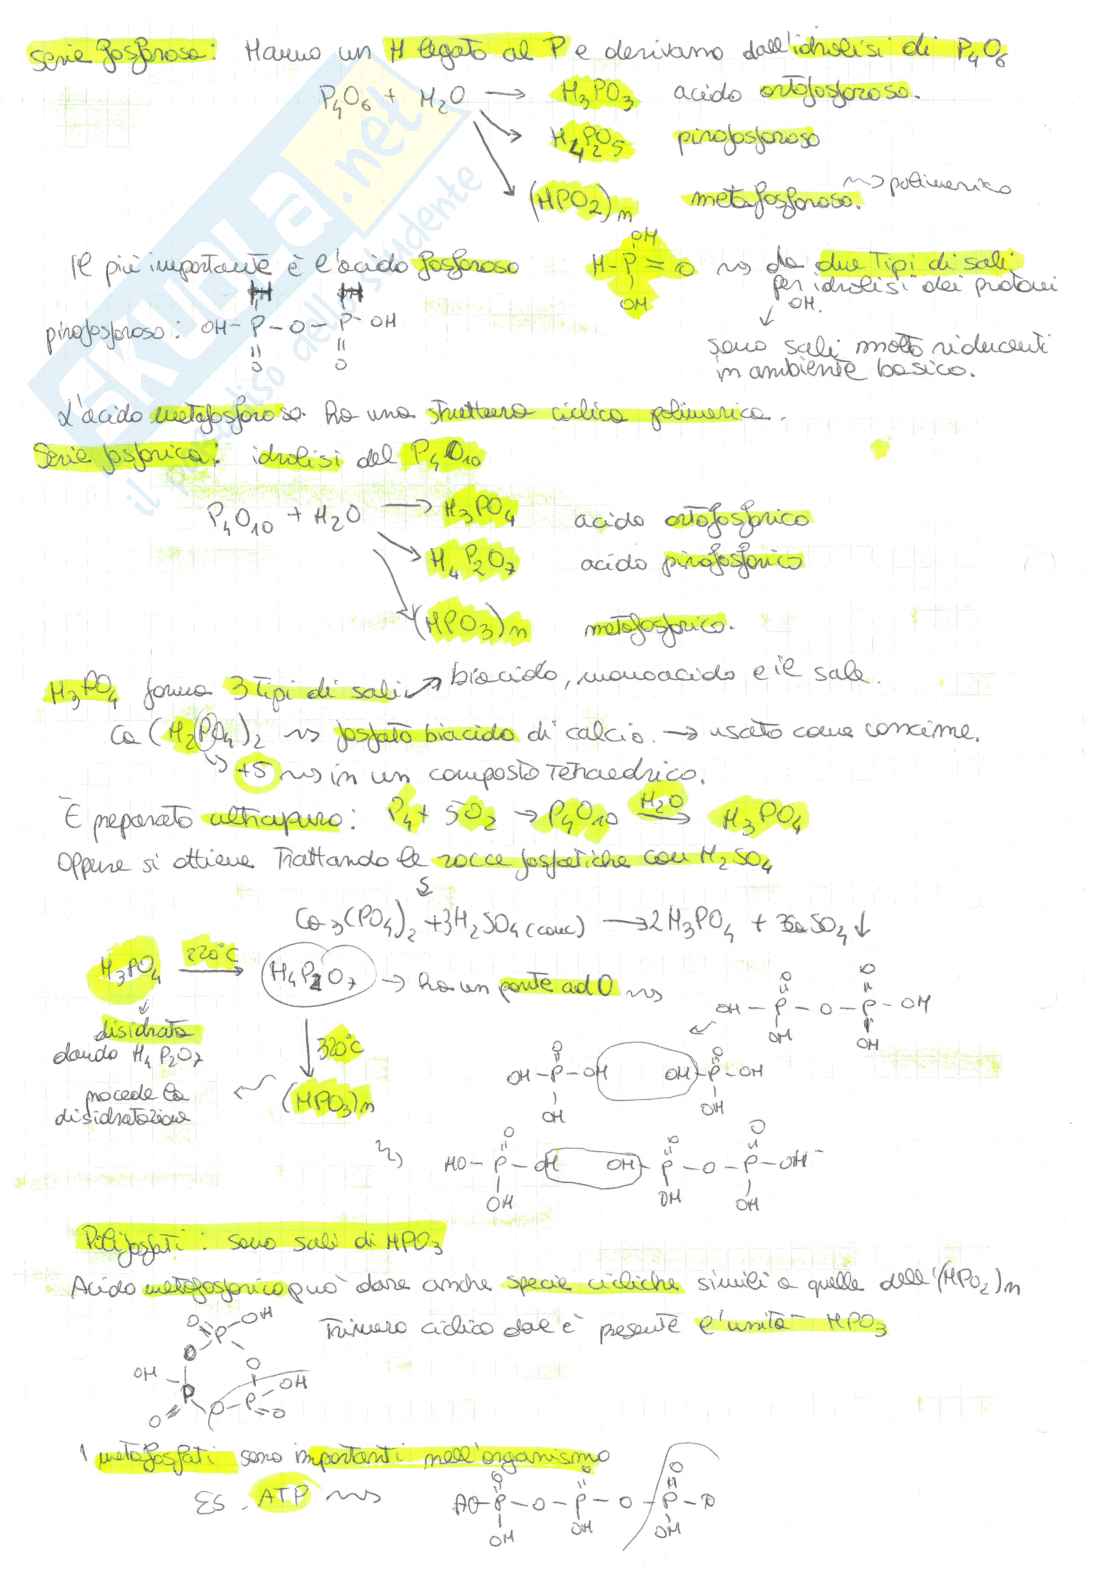 Serie fosforosa: Hanno un H legato al P e derivano dall'idrolisi di P4O6
P4O6 + H2O → H3PO3 acido ortofosforoso.
H4P2O5 pirofosforoso
(HPO2)n metafosforoso. ~> polimerico
Il più importante è l'acido fosforoso H-P=O ~> da due tipi di sali
OH
OH
per idrolisi dei protoni
OH.
sono sali molto riducenti
in ambiente basico.
pirofosforoso: OH-P-O-P-OH
H H
O O
L'acido metafosforoso ha una struttura ciclica polimerica.
Serie fosforica: idrolisi del P4O10
P4O10 + H2O → H3PO4 acido ortofosforico
H4P2O7 acido pirofosforico
(HPO3)n metafosforico.
H3PO4 forma 3 tipi di sali → biacido, monoacido e il sale.
Ca(H2PO4)2 ~> fosfato biacido di calcio. → usato come concime.
+5 ~> in un composto tetraedrico.
È preparato ultrapuro: P4 + 5O2 → P4O10 H2O→ H3PO4
Oppure si ottiene trattando le rocce fosfatiche con H2SO4
Ca3(PO4)2 + 3H2SO4 (conc) → 2H3PO4 + 3CaSO4↓
H3PO4 220°C→ H4P2O7 → ha un ponte ad O ~> OH-P-O-P-OH
O O
OH OH
disidrata
dando H4P2O7
320°C
procede la
disidratazione
(HPO3)n
O O
OH-P-OH OH-P-OH
OH OH
O O O
HO-P-OH OH-P-O-P-OH
OH OH OH
Polifosfati: sono sali di HPO3
Acido metafosforico può dare anche specie cicliche simili a quelle dell'(HPO2)n
Trimero ciclico dove è presente l'unità HPO3
O P OH
O O
OH P O P OH
O O
I metafosfati sono importanti nell'organismo
ES. ATP ~>
O O O
AO-P-O-P-O-P-O
OH OH OH
SKUOLA.net
il paradiso dello studente